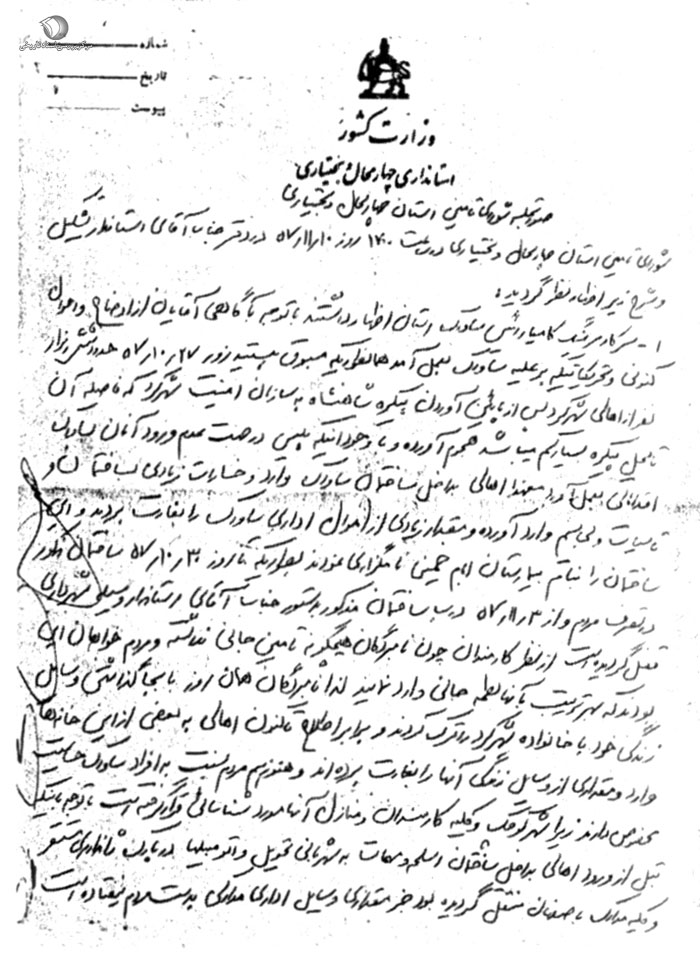 مرکز بررسی اسناد تاریخی
شماره
تاریخ
پیوست
وزارت کشور
استانداری چهارمحال بختیاری
صورتجلسه شورای تامین استان چهارمحال و بختیاری
شورای تامین استان چهارمحال و بختیاری در ساعت ۱۷۰۰ روز ۵۷/۱۱/۱۰ در دفتر جناب آقای استاندار تشکیل
و بشرح زیر اظهار نظر گردید:
۱- سرکار سرهنگ کامیار رئیس ساواک استان اظهار داشتند با توجه با گاهی آقایان از اوضاع و احوال
کنونی و تحریکاتیکه بر علیه ساواک بعمل آمد همانطوریکه مسبوق هستید روز ۵۷/۱۰/۲۷ حدود شش هزار
نفر از اهالی شهرکرد پس از پائین آوردن پیکره شاهنشاه به سازمان امنیت شهرکرد که فاصله آن
تا محل پیکره بسیار کم میباشد هجوم آورده و با وجود اینکه پلیس در جهت عدم ورود آنان بساواک
اقداماتی بعمل آورد معهذا اهالی بداخل ساختمان ساواک وارد و خسارات زیادی بساختمان و
تاسیسات و بی‌سیم وارد آورده و مقدار زیادی از اموال اداری ساواک را بغارت بردند و این
ساختمان را بنام بیمارستان امام خمینی نامگزاری نمودند بطوریکه تا روز ۵۷/۱۰/۳۰ ساختمان مذکور
در تصرف مردم و از ۵۷/۱۱/۳ درب ساختمان مذکور بدستور جناب آقای استاندار وسیله شهرداری
قفل گردیده است از نظر کارمندان چون نامبردگان هیچگونه تامین جانی نداشته و مردم خواهان این
بودند که بهر ترتیب بآنها لطمه جانی وارد نمایند لذا نامبردگان همان روز با بجا گذاشتن وسایل
زندگی خود با خانواده شهرکرد را ترک کردند و برابر اطلاع تاکنون اهالی به بعضی از این خانه‌ها
وارد و مقداری از وسایل زندگی آنها را بغارت برده‌اند و هنوز هم مردم نسبت به افراد ساواک حساسیت
بخصوص دارند زیرا شهر کوچک و کلیه کارمندان و منازل آنها مورد شناسائی قرار گرفته است با توجه باینکه
قبل از ورود اهالی بداخل ساختمان اسلحه و مهمات به شهربانی تحویل و اتومبیلها در پارک استانداری مستقر
و کلیه مدارک باصفهان منتقل گردیده بود جز مقداری وسایل اداری مدارکی بدست مردم نیفتاده است